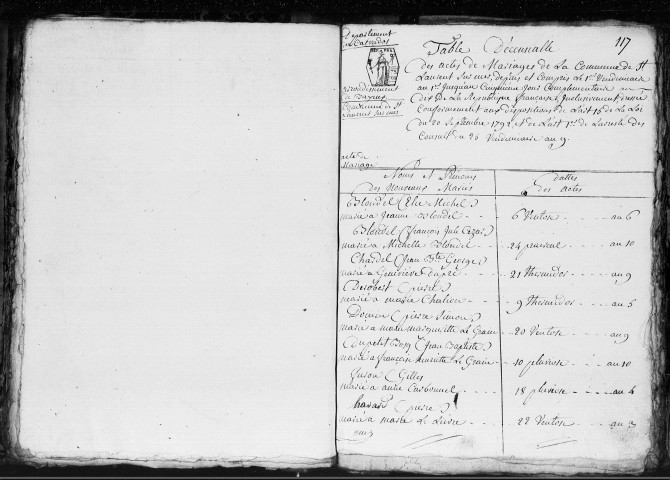 117
Département
du Calvados
Arrondissement
de Bayeux
Commune de St
Laurent sur mer
Table Décennalle
des actes de Mariages de La Commune de St
Laurent sur mer, depuis et Compris Le 1er Vendemiaire
au 1er Jusqu'au Cinquieme Jour Complementaire an
dix De La Republique française Inclusivement dressée
Conformement aux dispositions de L'art 15 de La Loi
du 20 Septembre 1792 et de L'art 1er de L'arreté des
Consuls du 25 Vendemiaire an 9
acte de
Mariage
Noms et Prénoms
des Nouveaux Mariés
dattes
des actes
Blondel (Elie Michel)
marié à Jeanne Blondel - - 6 Ventose - - - - an 6
Blondel (françois Jule Cezar)
marié à Michelle Blondel - - - 24 prereal - - - an 10
Chardel (Jean Bte George)
marié a Geneviève - - - 21 thermidor - - - an 9
(pierre)
marié a marie - - - - 9 thermidor - - - an 5
(pierre Simon)
marié a marie margueritte Le Grain - - 20 Ventose - - - an 9
(Jean Baptiste)
marié a françoise henriette Le Grain - - 10 pluviose - - - an 10
Guson (Gilles
marié a anne Carbonnel - - - 18 pluviose - - - an 4
havard (pierre)
marié a marie Le Lievre - - - 22 Ventose - - - an 3